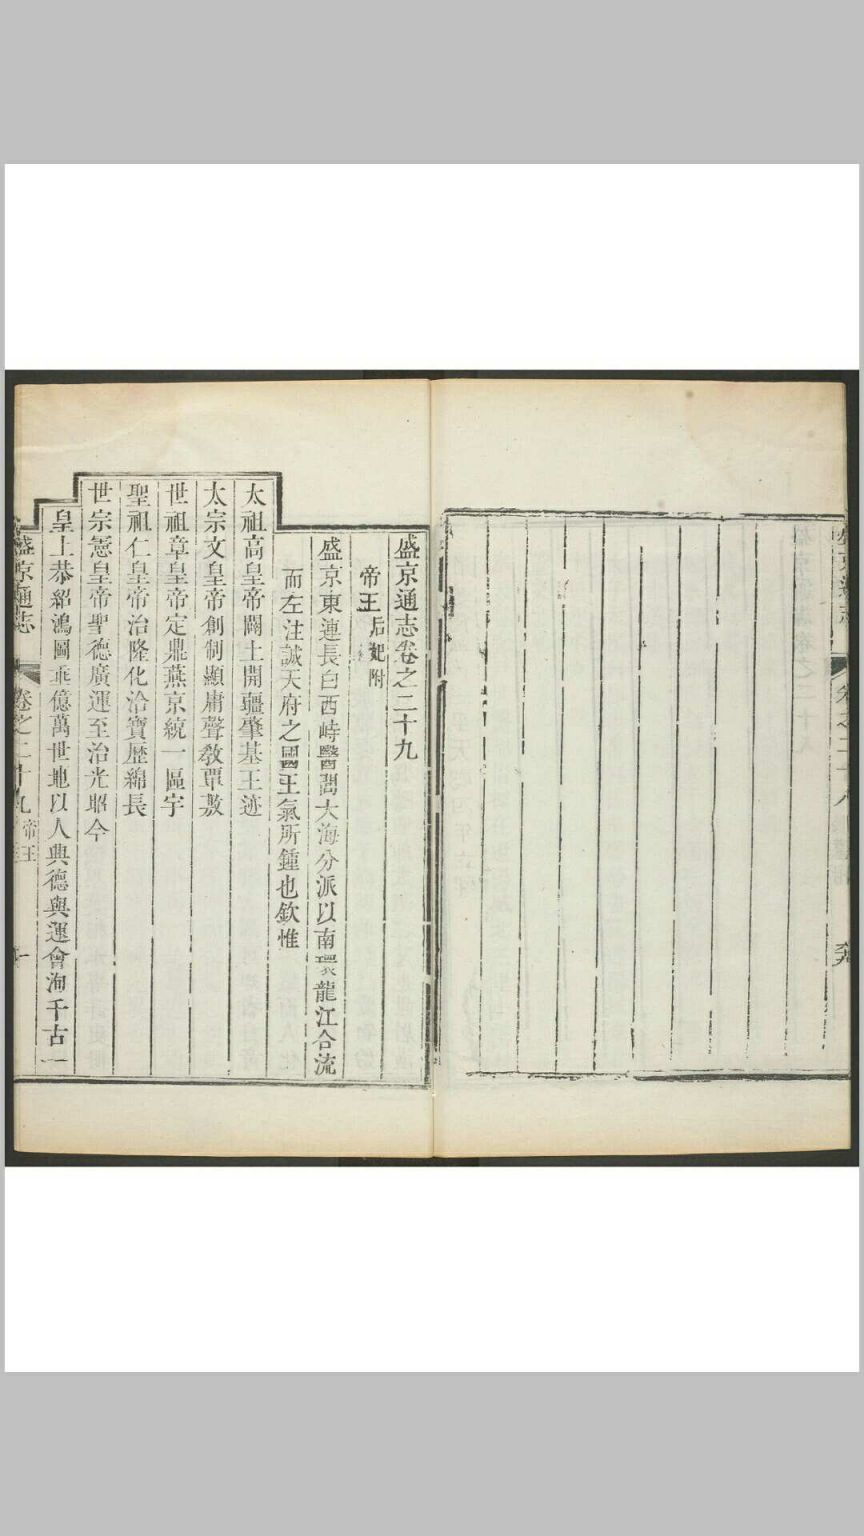 盛京通志卷之二十九
帝王后妃附
盛京東連長白西峙醫閭大海分派以南環龍江合流
而左注誠天府之國王氣所鍾也欽惟
太祖高皇帝闢土開疆肇基王迹
太宗文皇帝創制顯庸聲教覃敷
世祖章皇帝定鼎燕京統一區宇
聖祖仁皇帝治隆化洽寶歷綿長
世宗憲皇帝聖德廣運至治光昭今
皇上恭紹鴻圖乖億萬世地以人興德與運會洵千古一
盛京通志 卷之二十九 帝王 一